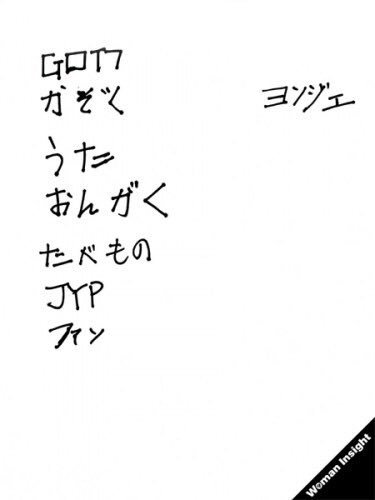 GOT7
かぞく
ヨンジェ
うた
おんがく
たべもの
JYP
ファン
Woman Insight